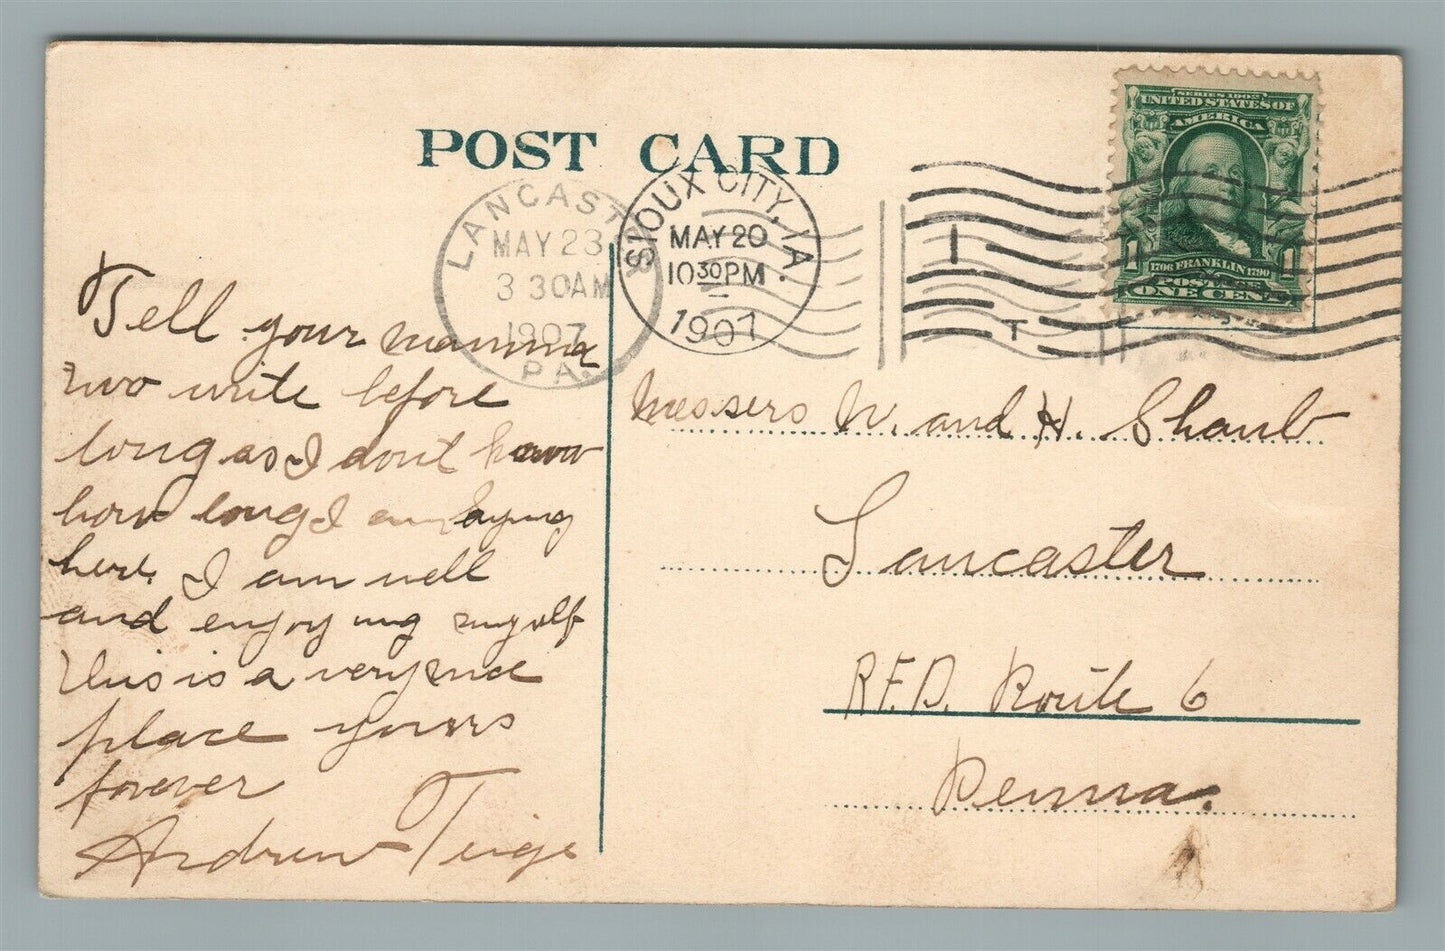 POST CARD
LANCASTER
MAY 23
3 30AM
1907
PA.
SIOUX CITY, IA.
MAY 20
10 30 PM
1907
SERIES 1902
UNITED STATES OF
AMERICA
1706 FRANKLIN 1790
POSTAGE
1 1
ONE CENT
Tell your mamma
two write before
long as I dont know
how long I am
here. I am well
and enjoying myself
this is a very nice
place yours
forever
Andrew
Messers W. and H. Shaub
Lancaster
R.F.D. Route 6
Penna.